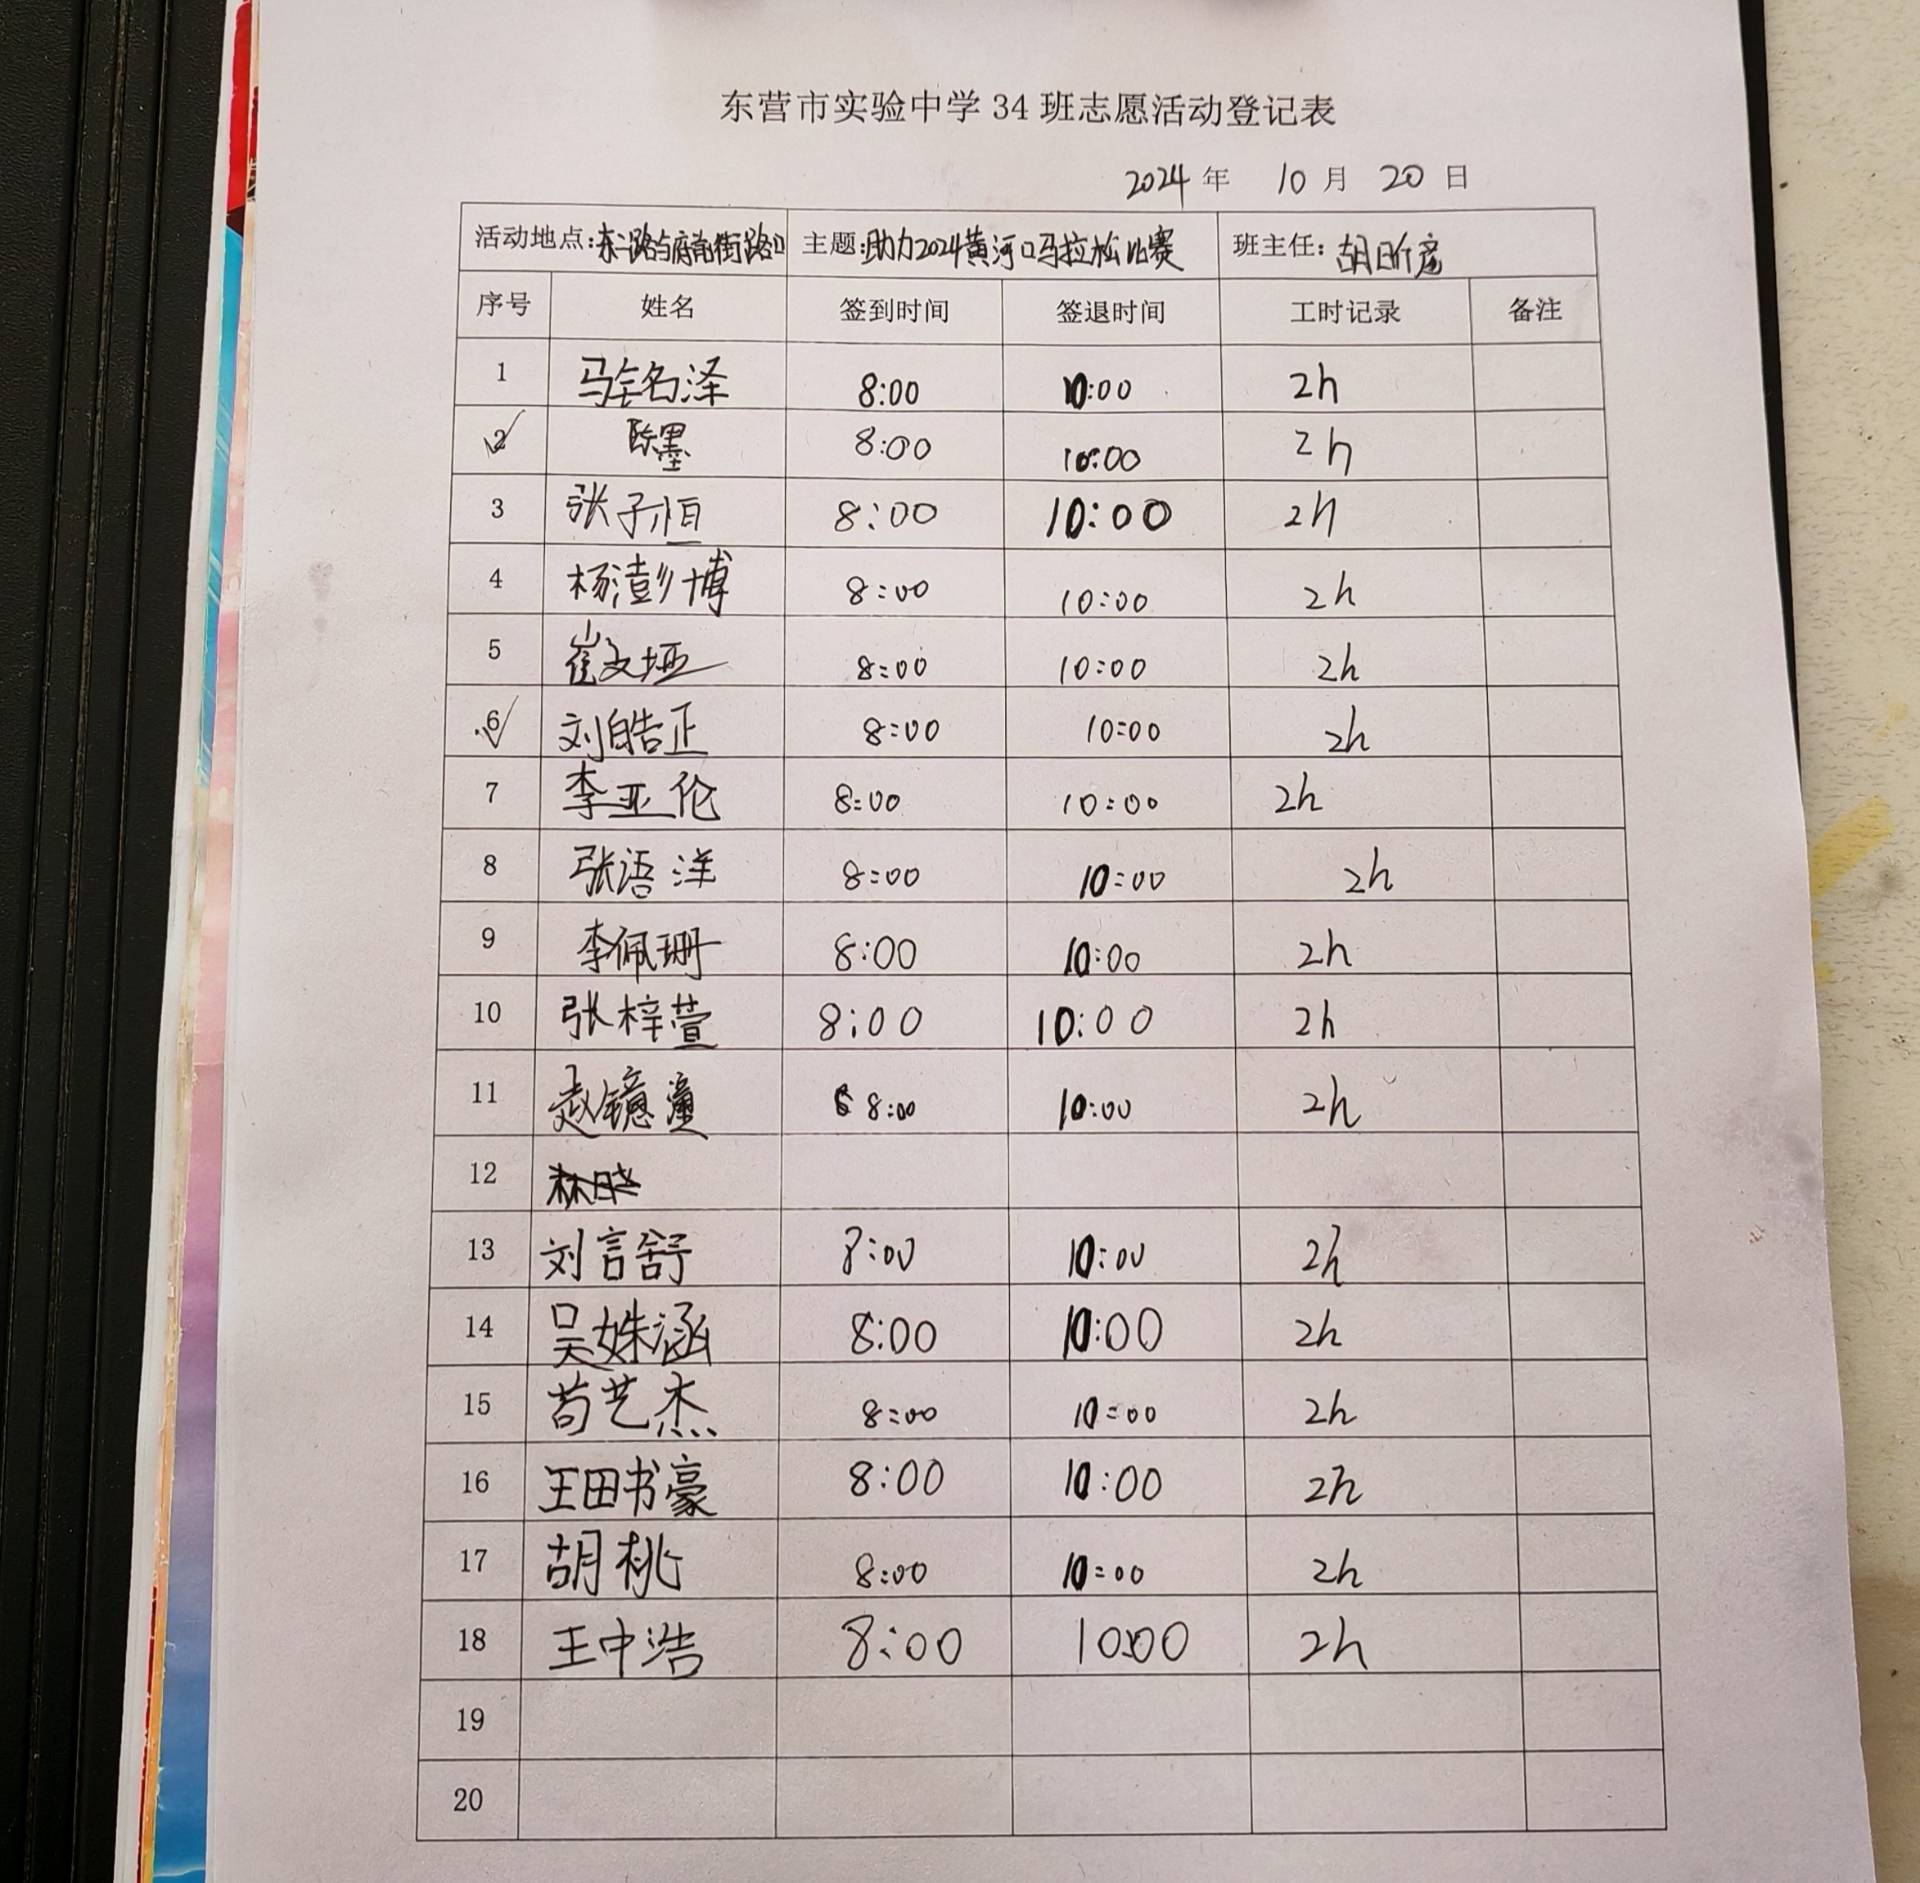 东营市实验中学 34 班志愿活动登记表
2024 年 10 月 20 日
活动地点:东二路与府前街路口 主题:助力2024黄河口马拉松比赛 班主任:胡昕彦
序号 姓名 签到时间 签退时间 工时记录 备注
1 马铨名泽 8:00 10:00 2h
2 陈墨 8:00 10:00 2h
3 张子恒 8:00 10:00 2h
4 杨澎博 8:00 10:00 2h
5 崔文垭 8:00 10:00 2h
6 刘皓正 8:00 10:00 2h
7 李亚伦 8:00 10:00 2h
8 张语洋 8:00 10:00 2h
9 李佩珊 8:00 10:00 2h
10 张梓萱 8:00 10:00 2h
11 赵镱潼 8:00 10:00 2h
12
13 刘言舒 8:00 10:00 2h
14 吴姝涵 8:00 10:00 2h
15 苟艺杰 8:00 10:00 2h
16 王田书豪 8:00 10:00 2h
17 胡桃 8:00 10:00 2h
18 王中浩 8:00 10:00 2h
19
20